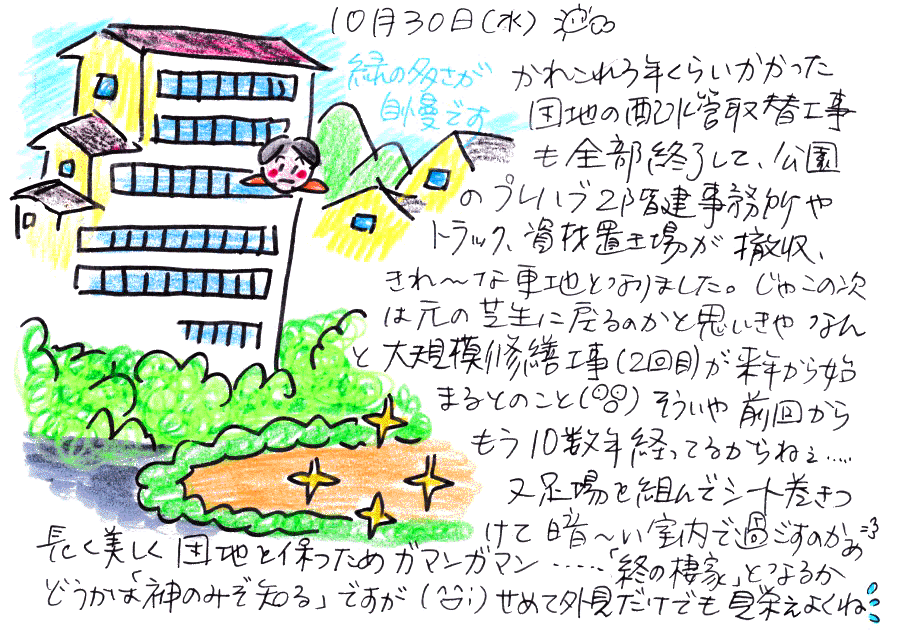 10月30日(水)
緑の多さが
自慢です
かれこれ3年くらいかかった
団地の配水管取替工事
も全部終了して、公園
のプレハブ2階建事務所や
トラック、資材置き場が撤収、
きれ〜な更地となりました。じゃこの次
は元の芝生に戻るのかと思いきや なん
と大規模修繕工事(2回目)が来年から始
まるとのこと そういや前回から
もう10数年経ってるからねぇ.....
又足場を組んでシート巻きつ
けて暗〜い室内で過ごすのかぁ
長く美しく団地を保つためガマンガマン.....「終の棲家」となるか
どうかは「神のみぞ知る」ですが せめて外見だけでも見栄えよくね